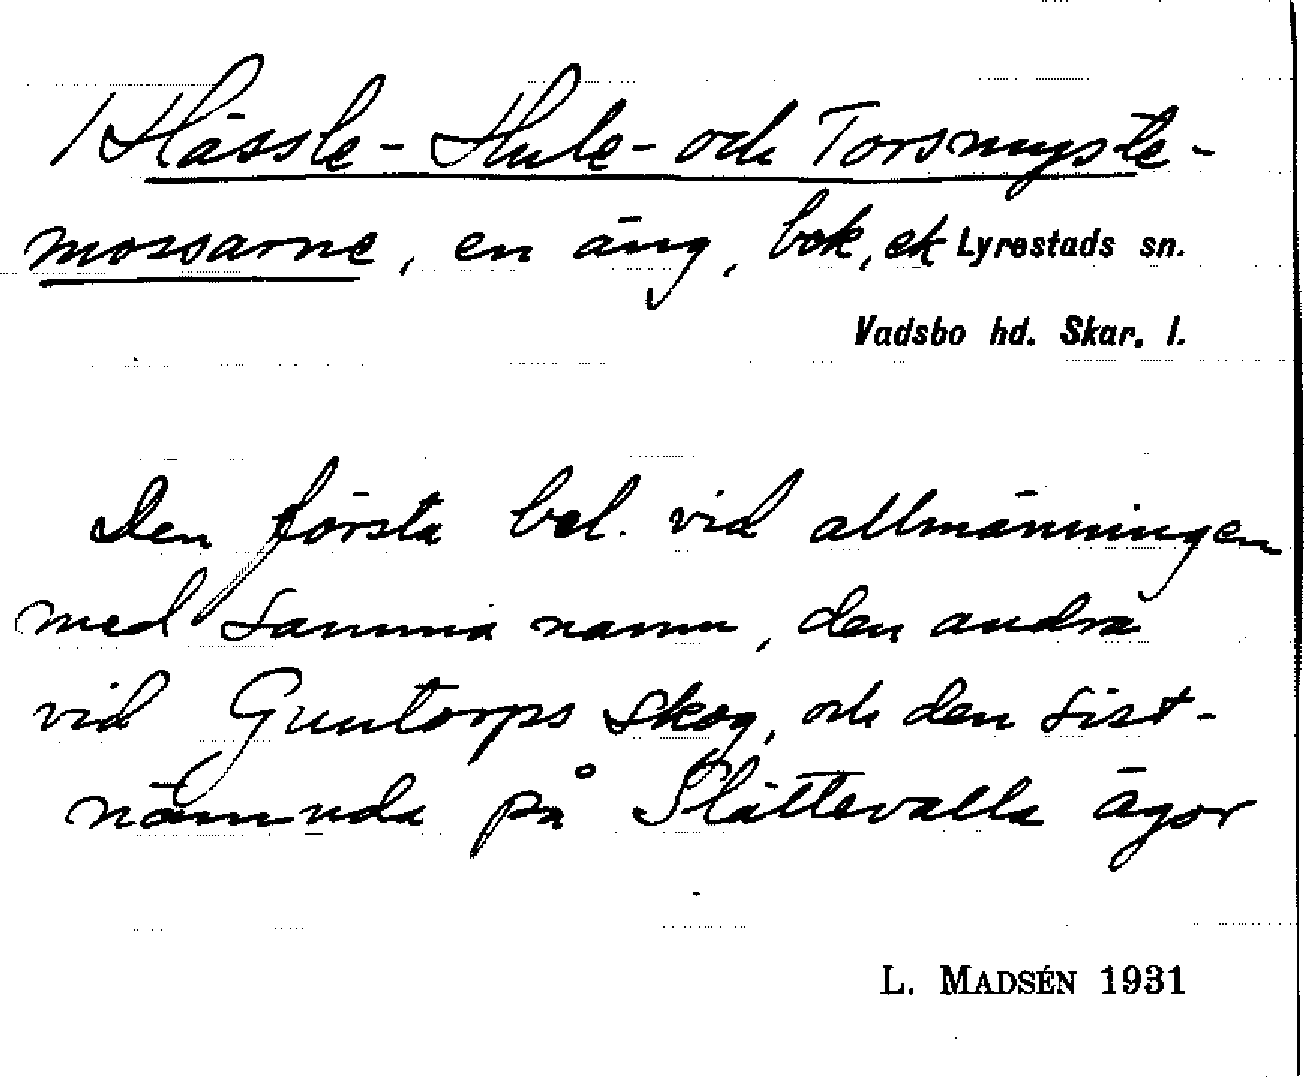 /Hässle- Hule- och Torsmyste-
mossarne, en äng, bok, ek Lyrestads sn.
Vadsbo hd. Skar. l.
Den första bel. vid allmänningen
med samma namn, den andra
vid Guntorps skog, och den sist-
nämnda på Slättevalla ägor
L. MADSÉN 1931